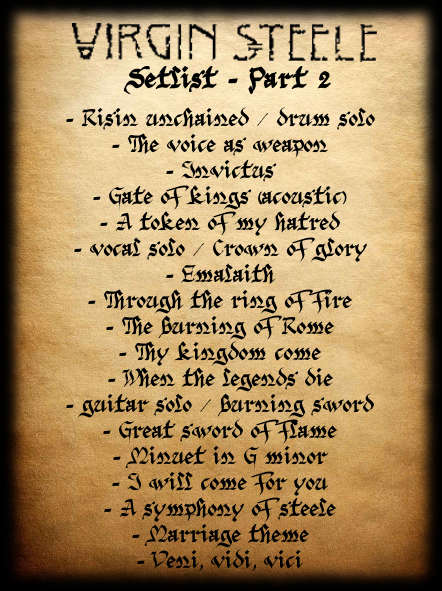 VIRGIN STEELE
Setlist - Part 2
- Risin unchained / drum solo
- The voice as weapon
- Invictus
- Gate of kings (acoustic)
- A token of my hatred
- vocal solo / Crown of glory
- Emalaith
- Through the ring of fire
- The Burning of Rome
- Thy kingdom come
- When the legends die
- guitar solo / Burning sword
- Great sword of flame
- Minuet in G minor
- I will come for you
- A symphony of steele
- Marriage theme
- Veni, vidi, vici